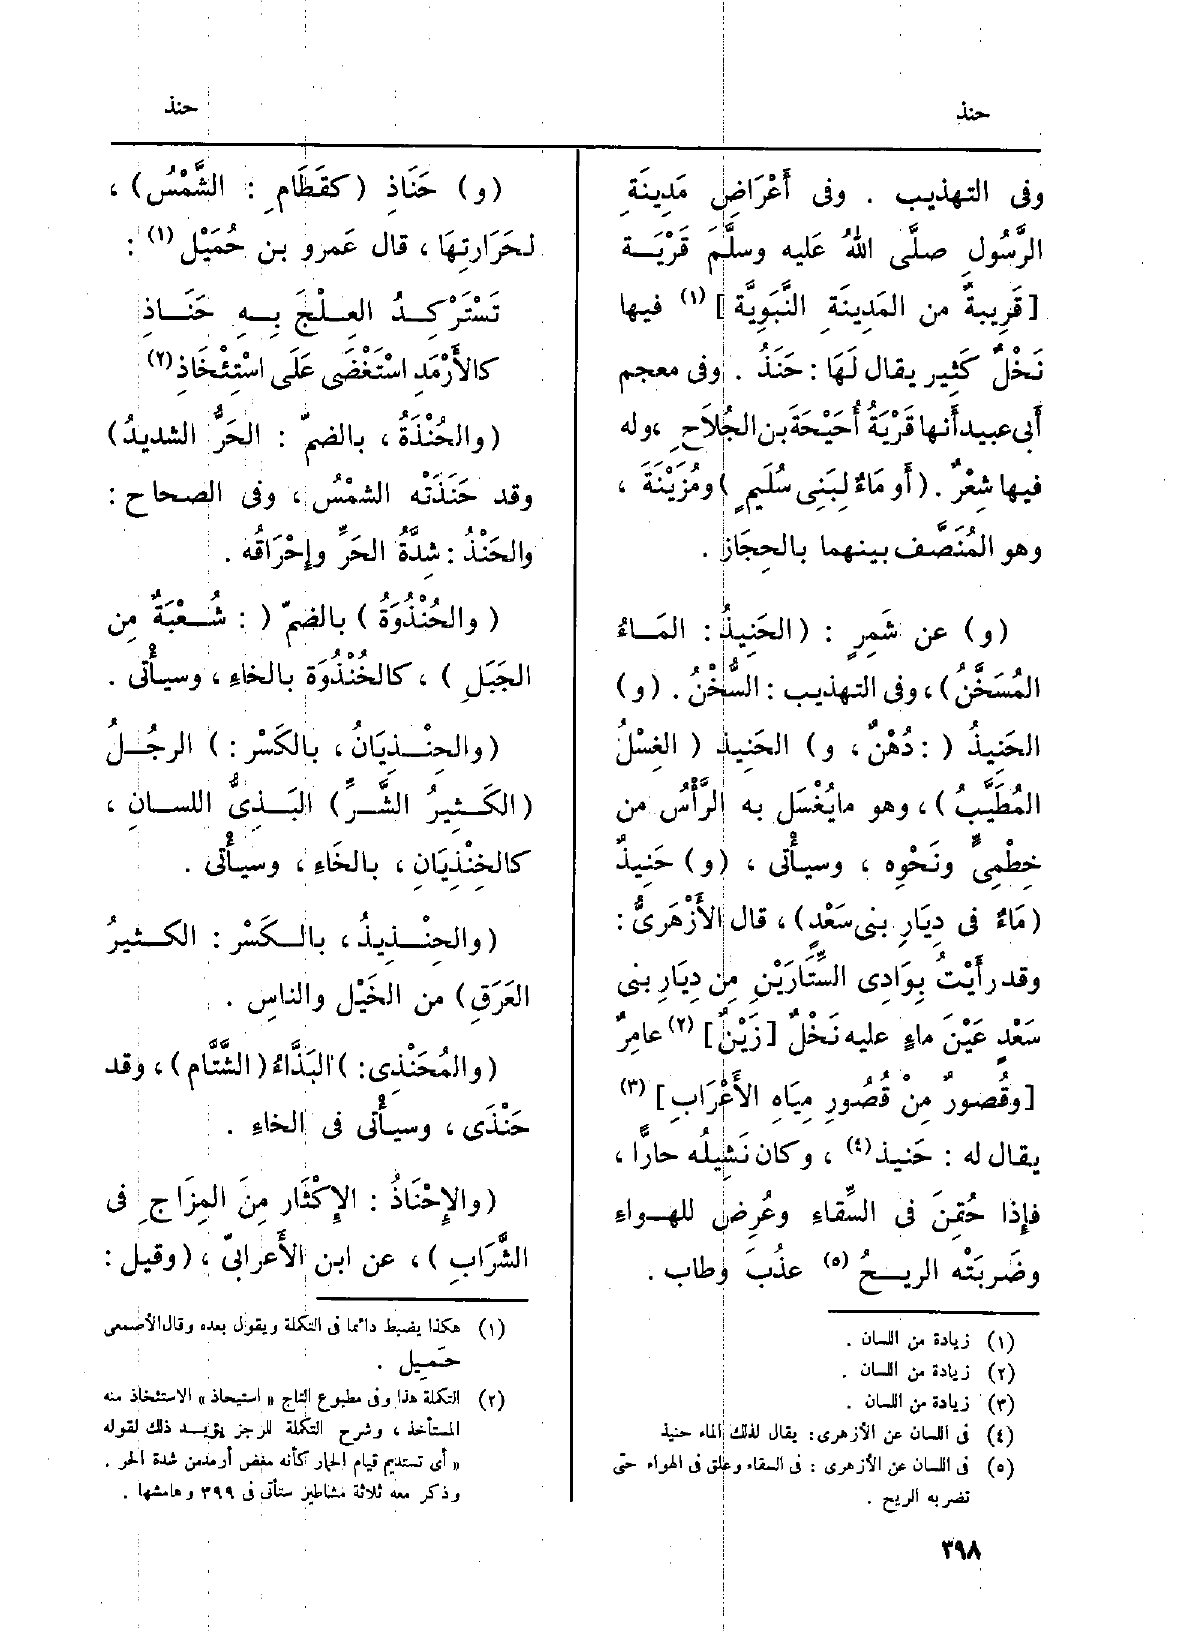 حنذ
حنذ
وفى التهذيب . وفى أَعْرَاضِ مَدِينَةِ
الرَّسُولِ صلَّى اللهُ عَليه وسلَّمَ قَرْيَة
[قَرِيبةٌ من المَدِينَةِ النَّبَوِيَّة] (١) فيها
نَخْلٌ كَثِير يقال لَهَا : حَنَذُ . وفى معجم
أبى عبيد أنها قَرْيَةُ أُحَيْحَةَ بن الجُلاَح ، وله
فيها شِعْرٌ . (أَو مَاءٌ لِبَنِى سُلَيمٍ) ومُزَيْنَةَ ،
وهو المُنَصَّف بينهما بالحِجَاز .
(و) عن شَمِرٍ : (الحَنِيذُ : المَاءُ
المُسَخَّنُ) ، وفى التهذيب : السُّخْنُ . (و)
الحَنِيذُ ( : دُهْنٌ ، و) الحَنِيذ ( الغِسْلُ
المُطَيَّبُ) ، وهو مايُغْسَل به الرَّأْسُ من
خِطْمِىٍّ ونَحْوِه ، وسيأْتى ، (و) حَنِيذٌ
(مَاءٌ فى دِيَارِ بنى سَعْدٍ) ، قال الأَزْهَرىُّ :
وقد رأَيْتُ بِوَادِى السِّتَّارَيْنِ مِن دِيَارِ بنى
سَعْدٍ عَيْنَ ماءٍ عليه نَخْلٌ [زَيْنٌ] (٢) عامِرٌ
[وقُصورٌ مِنْ قُصُورِ مِيَاهِ الأَعْرَابِ] (٣)
يقال له : حَنيذ (٤) ، وكان نَشِيلُه حارًّا ،
فإذا حُقِنَ فى السِّقَاءِ وعُرِض للهواءِ
وضَربَتْه الريحُ (٥) عذُبَ وطاب .
(١) زيادة من اللسان .
(٢) زيادة من اللسان .
(٣) زيادة من اللسان .
(٤) فى اللسان عن الأزهرى : يقال لذلك الماء حنيذ
(٥) فى اللسان عن الأزهرى : فى السقاء وعلق فى الهواء حتى
تضربه الريح .
٣٩٨
(و) حَنَاذِ (كقَطَامِ : الشَّمْسُ) ،
لحَرَارتِهَا ، قال عَمرو بن حُمَيْل (١) :
تَسْتَرْكِدُ العِلْجَ بِهِ حَنَاذِ
كالأَرْمَدِ اسْتَغْضَى عَلَى اسْتِئْخَاذِ (٢)
(والحُنْذَةُ ، بالضمّ : الحَرُّ الشديدُ)
وقد حَنَذَتْه الشمْسُ ، وفى الصحاح :
والحَنْذُ : شِدَّةُ الحَرِّ وإِحْرَاقُه .
(والحُنْذُوَةُ ) بالضمّ ( : شُعْبَةٌ مِن
الجَبَلِ ) ، كالخُنْذُوَة بالخاءِ ، وسيأْتى .
(والحِنْذِيَانُ ، بالكَسْر : ) الرجُلُ
(الكَثِيرُ الشَّرِّ) البَذِىُّ اللسانِ ،
كالخِنْذِيَانِ ، بالخَاءِ ، وسيأْتى .
(والحِنْذِيذُ ، بالكَسْر : الكثيرُ
العَرَقِ) من الخَيْل والناسِ .
(والمُحَنْذِى : ) البَذَّاءُ (الشَّتَّام ) ، وقد
حَنْذَى ، وسيأْتى فى الخاءِ .
(والإِحْنَاذُ : الإِكْثَار مِنَ المِزَاج ِ فى
الشَّرَابِ) ، عن ابن الأَعرابىّ ، (وقيل :
(١) هكذا يضبط دائما فى التكملة ويقول بعده وقال الأصمعى
حَميل .
(٢) التكملة هذا وفى مطبوع التاج « استيحاذ » الاستئخاذ منه
المستأخذ ، وشرح التكملة للرجز يؤيد ذلك لقوله
« أى تستديم قيام الحمار كأنه مغض أرمد من شدة الحر .
وذكر معه ثلاثة مشاطيز ستأتى فى ٣٩٩ وهامشها .